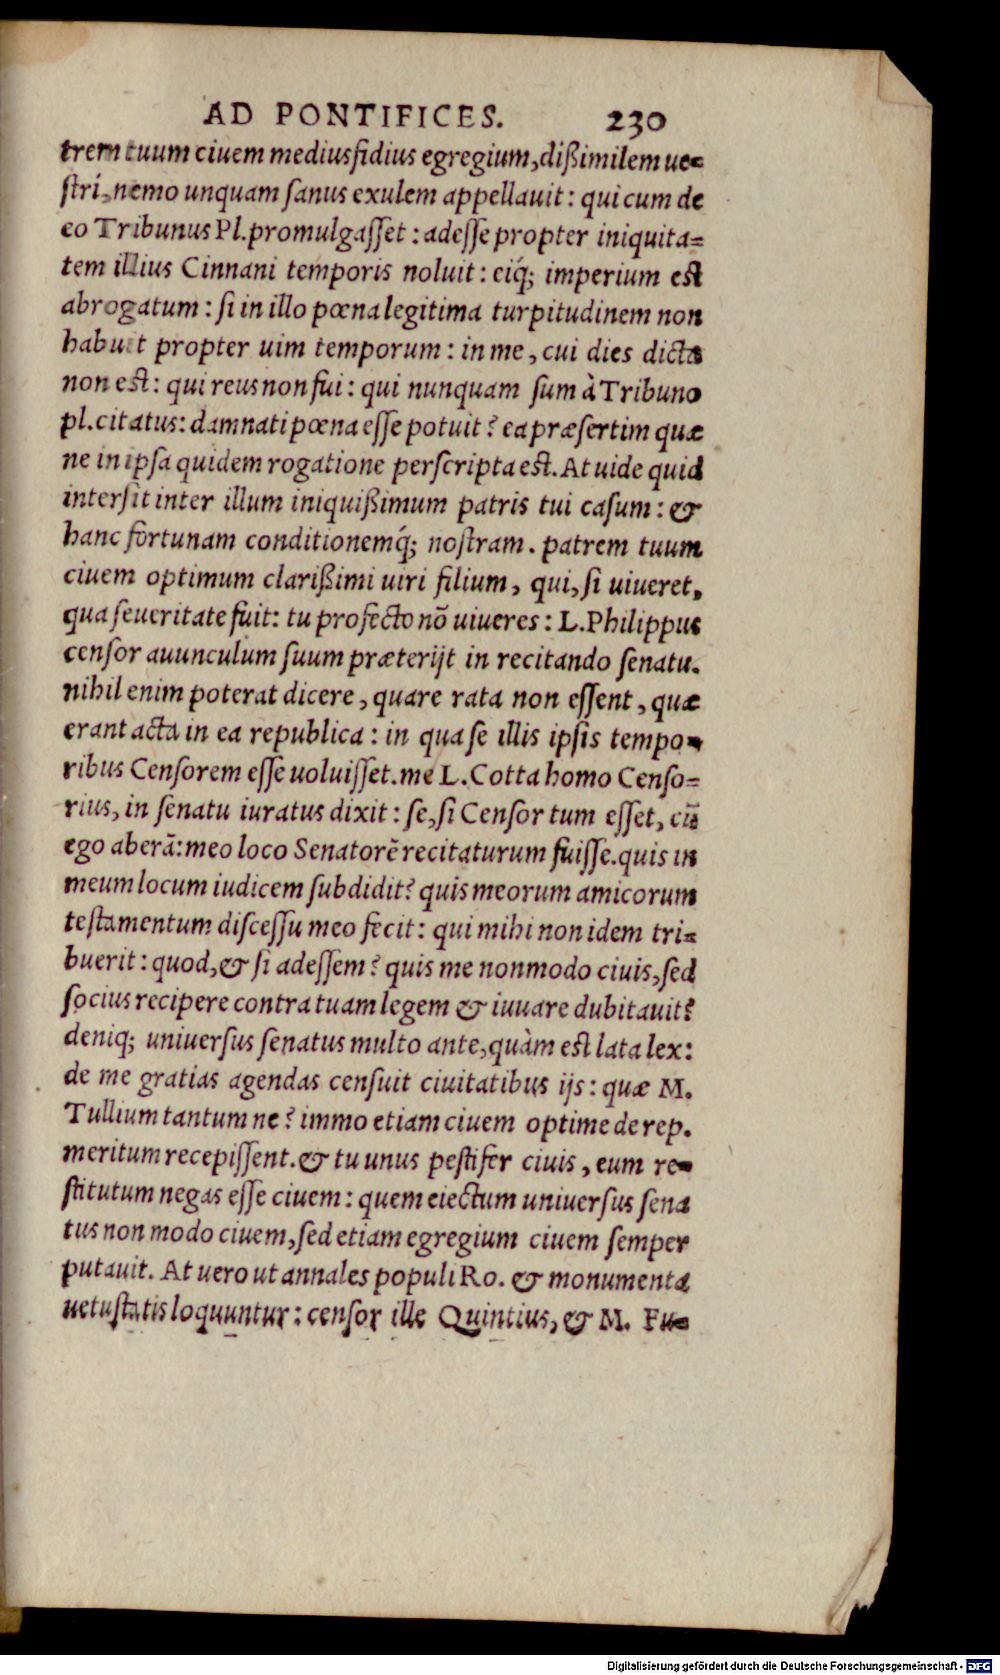 AD PONTIFICES. 230
trem tuum ciuem mediusfidius egregium, dißimilem ue-
stri, nemo unquam sanus exulem appellauit: qui cum de
eo Tribunus Pl. promulgasset: adesse propter iniquita-
tem illius Cinnani temporis noluit: eiq́; imperium est
abrogatum: si in illo pœna legitima turpitudinem non
habuit propter uim temporum: in me, cui dies dicta
non est: qui reus non fui: qui nunquam sum à Tribuno
pl. citatus: damnati pœna esse potuit? ea præsertim quæ
ne in ipsa quidem rogatione perscripta est. At uide quid
intersit inter illum iniquißimum patris tui casum: &
hanc fortunam conditionemq́; nostram. patrem tuum
ciuem optimum clarißimi uiri filium, qui, si uiueret,
qua seueritate fuit: tu profecto nō uiueres: L. Philippus
censor auunculum suum præterijt in recitando senatu.
nihil enim poterat dicere, quare rata non essent, quæ
erant acta in ea republica: in qua se illis ipsis tempo-
ribus Censorem esse uoluisset. me L. Cotta homo Censo-
rius, in senatu iuratus dixit: se, si Censor tum esset, cū
ego aberā: meo loco Senatorē recitaturum fuisse. quis in
meum locum iudicem subdidit? quis meorum amicorum
testamentum discessu meo fecit: qui mihi non idem tri-
buerit: quod, & si adessem? quis me nonmodo ciuis, sed
socius recipere contra tuam legem & iuuare dubitauit?
deniq; uniuersus senatus multo ante, quàm est lata lex:
de me gratias agendas censuit ciuitatibus ijs: quæ M.
Tullium tantum ne? immo etiam ciuem optime de rep.
meritum recepissent. & tu unus pestifer ciuis, eum re-
stitutum negas esse ciuem: quem eiectum uniuersus sena
tus non modo ciuem, sed etiam egregium ciuem semper
putauit. At uero ut annales populi Ro. & monumenta
uetustatis loquuntur: censor ille Quintius, & M. Fu-
Digitalisierung gefördert durch die Deutsche Forschungsgemeinschaft - DFG